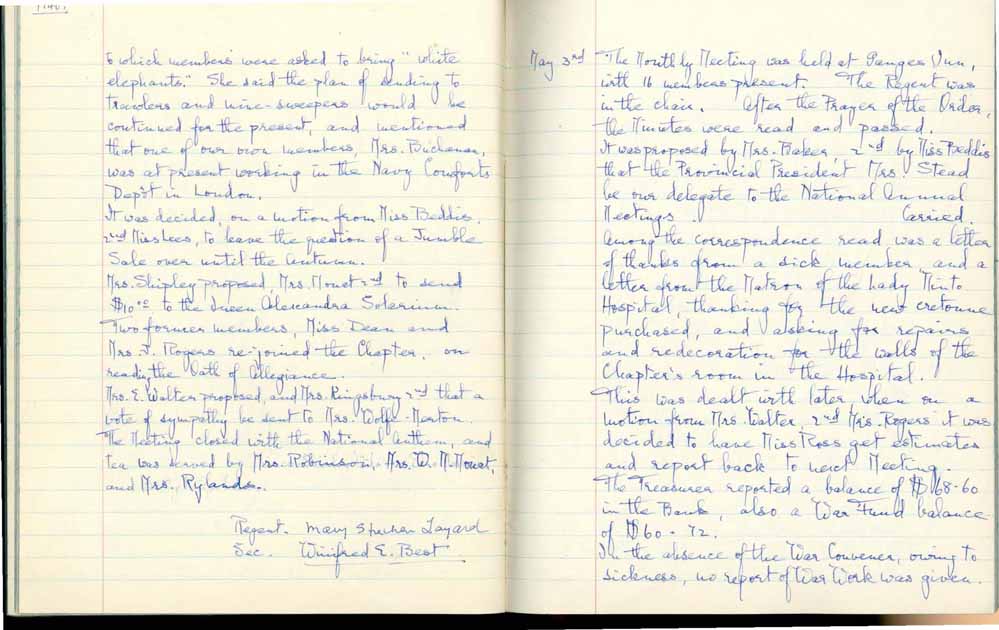 1940.
to which members were asked to bring "white
elephants." She said the plan of sending to
trawlers and mine-sweepers would be
continued for the present, and mentioned
that one of our own members, Mrs. Buchanan,
was at present working in the Navy Comforts
Dep't in London.
It was decided, on a motion from Miss Beddis,
2nd Miss Lees, to leave the question of a Jumble
Sale over until the Autumn.
Mrs. Shipley proposed, Mrs. Mouat 2nd to send
$10.00 to the Queen Alexandra Solarium.
Two former members, Miss Dean and
Mrs. J. Rogers re-joined the Chapter, on
reading the Oath of Allegiance.
Mrs. E. Walter proposed, and Mrs. Kingsbury 2nd that a
vote of sympathy be sent to Mrs. Wolfe-Merton.
The Meeting closed with the National Anthem, and
tea was served by Mrs. Robinson, Mrs. W. M. Mouat,
and Mrs. Rylands.
Regent. Mary Layard
Sec. Winifred E. Best
May 3rd The Monthly Meeting was held at Ganges Inn,
with 16 members present. The Regent was
in the chair. After the Prayer of the Order,
the Minutes were read and passed.
It was proposed by Mrs. Baker, 2nd by Miss Beddis
that the Provincial President Mrs. Stead
be our delegate to the National Annual
Meetings. Carried.
Among the correspondence read was a letter
of thanks from a sick member, and a
letter from the Matron of the Lady Minto
Hospital, thanking for the new cretonne
purchased, and asking for repairs
and redecoration for the walls of the
Chapter's room in the Hospital.
This was dealt with later when on a
motion from Mrs. Walter, 2nd Mrs. Rogers it was
decided to have Miss Ross get estimates
and report back to next Meeting.
The Treasurer reported a balance of $168.60
in the Bank, also a War Fund balance
of $60.72.
In the absence of the War Convener, owing to
sickness, no report of War Work was given.